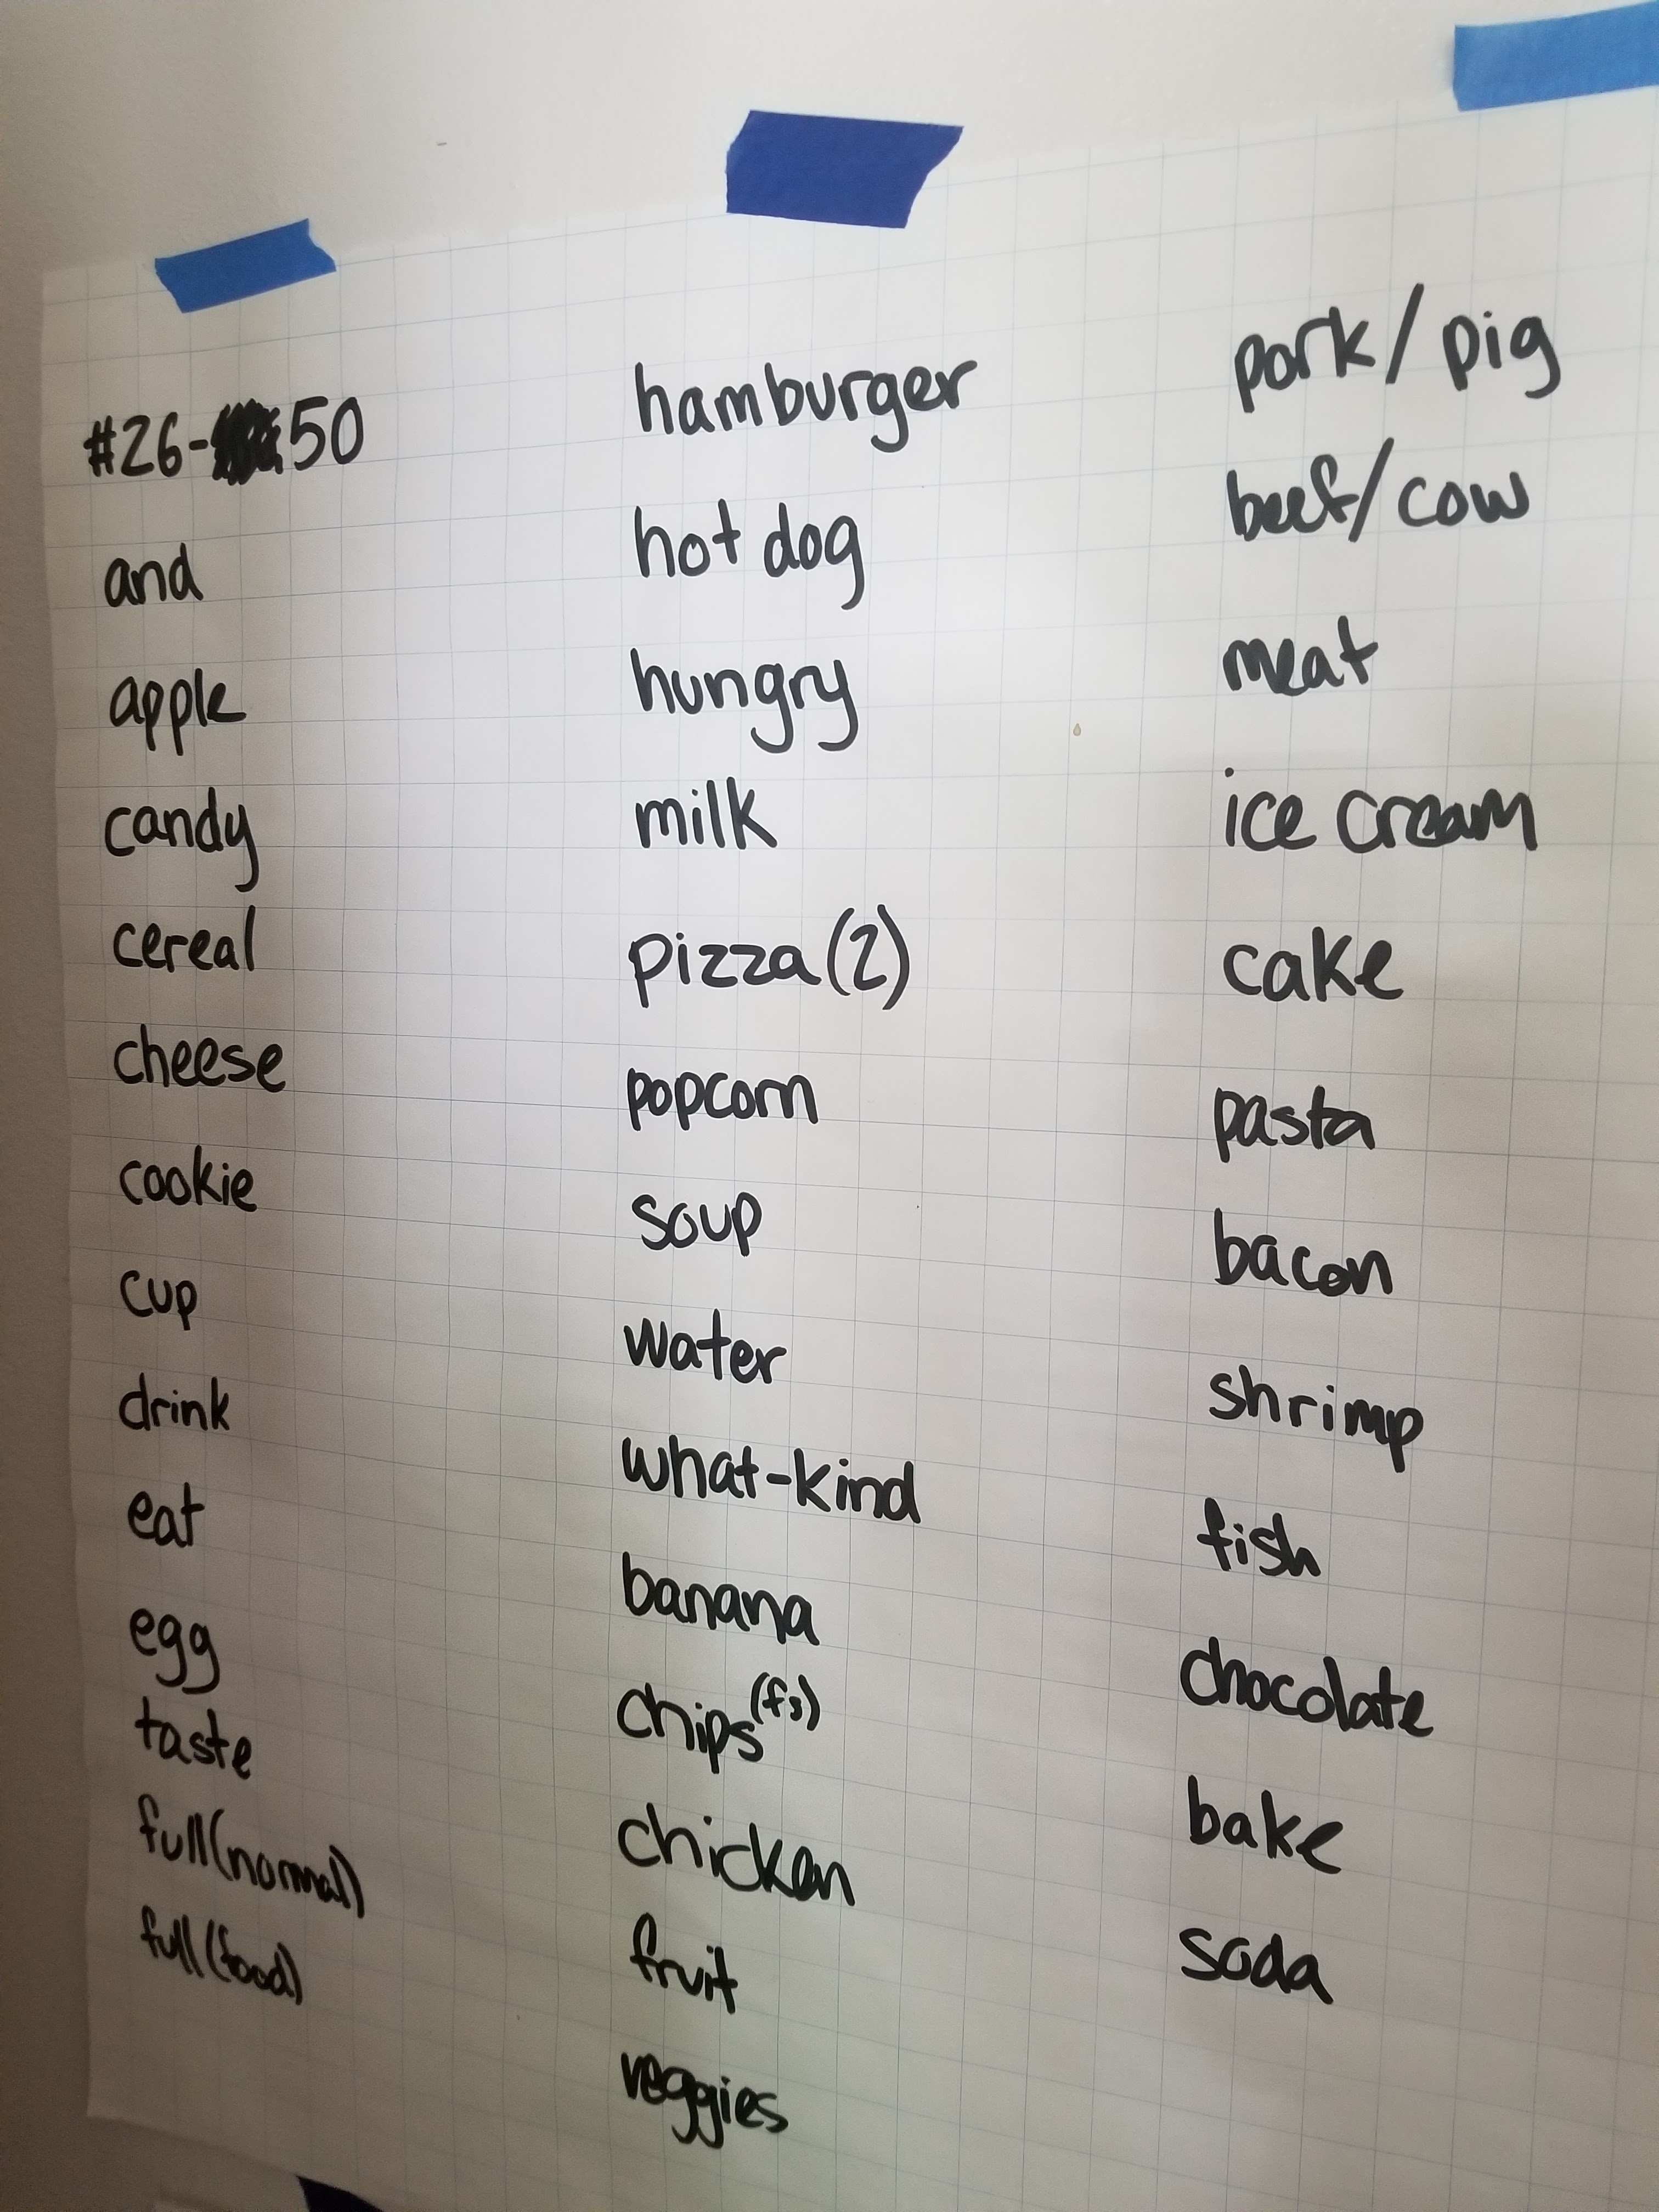 #26-50
and
apple
candy
cereal
cheese
cookie
cup
drink
eat
egg
taste
full(normal)
full(food)
hamburger
hot dog
hungry
milk
pizza(2)
popcorn
soup
water
what-kind
banana
chips (fs)
chicken
fruit
veggies
pork/pig
beef/cow
meat
ice cream
cake
pasta
bacon
shrimp
fish
chocolate
bake
soda